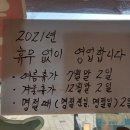 2021년
휴무 없이 영업합니다
여름휴가 7월말 2일
겨울휴가 12월말 2일
명절때 (